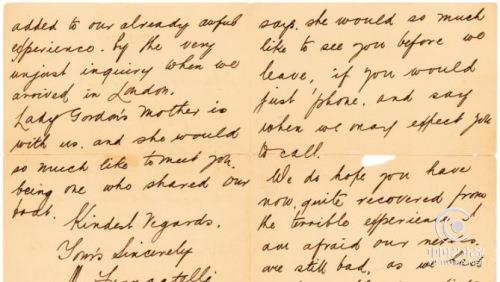 added to our already awful
experience. by the very
unjust inquiry when we
arrived in London.
Lady Gordon's Mother is
with us. and she would
so much like to meet you.
being one who shared our
boat.
Kindest Regards.
Yours Sincerely
Francatelli
says. she would so much
like to see you before we
leave, if you would
just 'phone. and say
when we may expect you
to call.
We do hope you have
now, quite recovered from
the terrible experience.
am afraid our nerves
are still bad, as we had